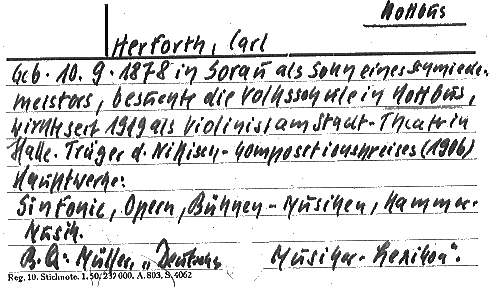 Kottbus
Herforth, Carl
Geb. 10. 9. 1878 in Sorau als Sohn eines Schmiede-
meisters, besuchte die Volksschule in Kottbus,
wirkte seit 1919 als Violinist am Stadt-Theater in
Halle. Träger d. Nikisch-Kompositionspreises (1906)
Hauptwerke:
Sinfonie, Opern, Bühnen-Musiken, Kammer-
Musik.
B.Q. Müller, „Deutsches Musiker-Lexikon".
Reg. 10. Stichnote. 1. 50, 237 000. A. 803, S. 4062